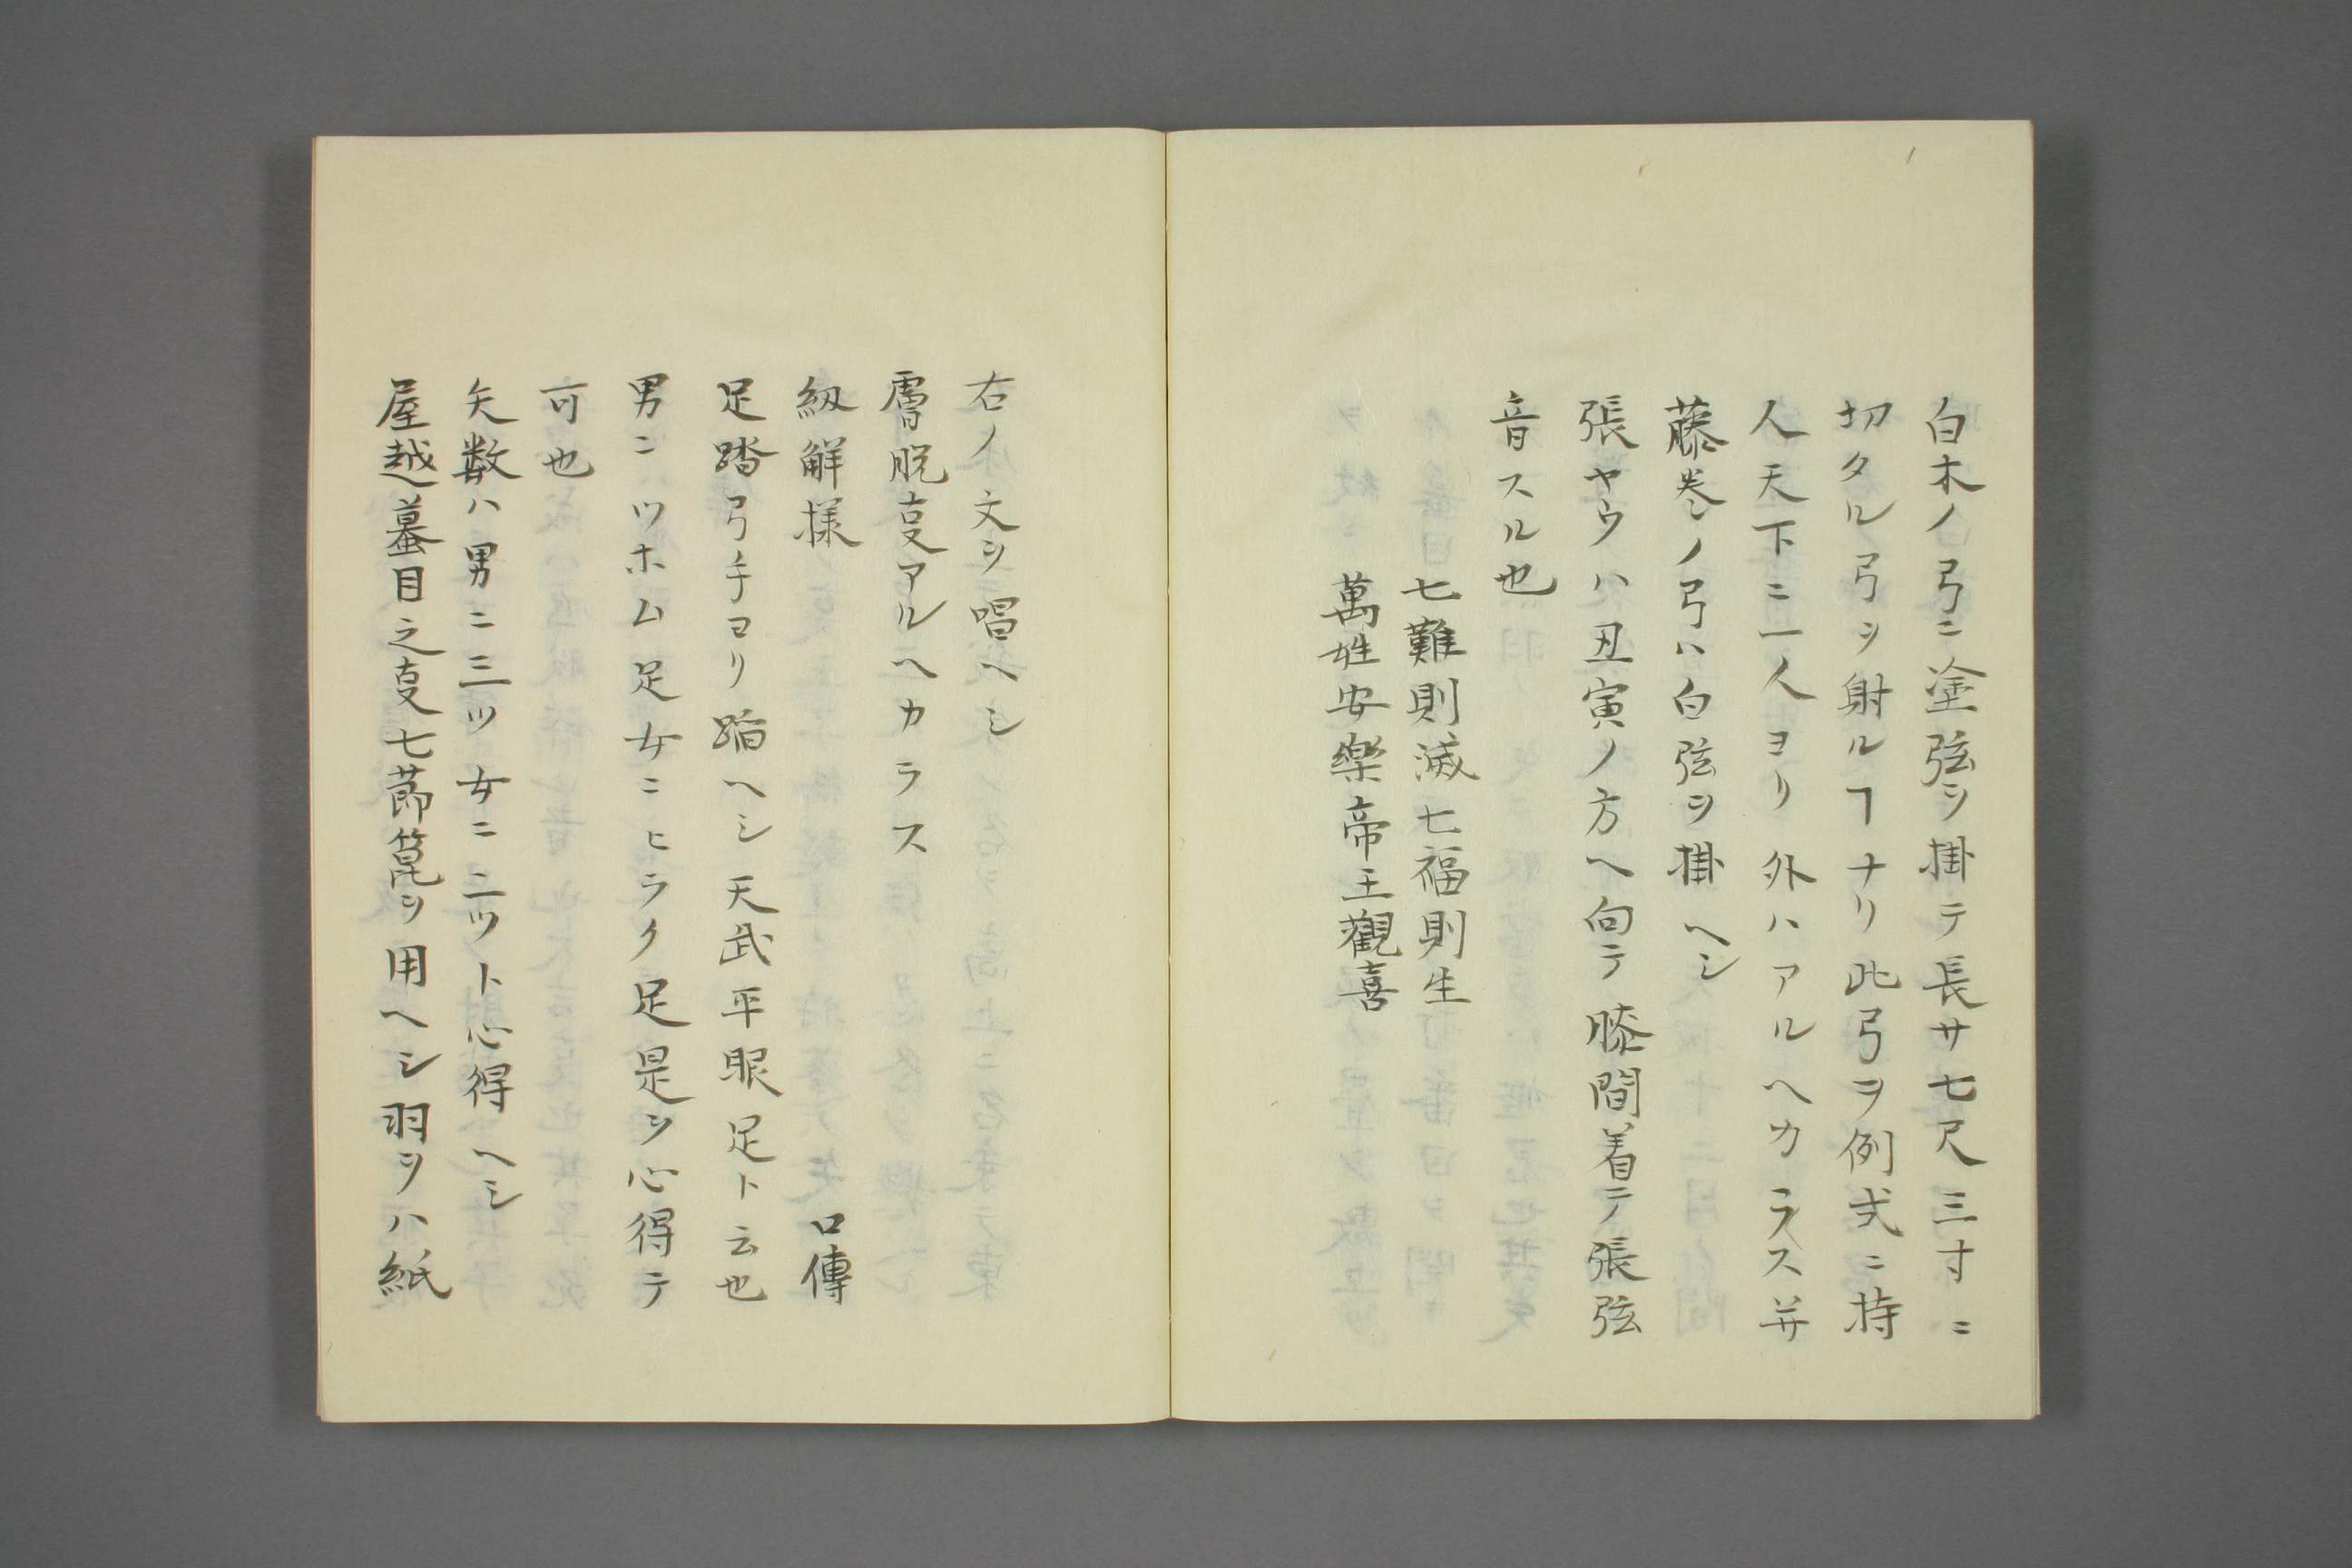 白木ノ弓ニ塗弦ヲ掛テ長サ七尺三寸ニ
切タル弓ヲ射ルヿナリ此弓ヲ例式ニ持
人天下ニ一人ヨリ外ハアルヘカラス并
藤巻ノ弓ハ白弦ヲ掛ヘシ
張ヤウハ丑寅ノ方ヘ向テ膝間着テ張弦
音スル也
七難則滅七福則生
萬姓安樂帝王觀喜
右ノ文ヲ唱ヘシ
膚脱叓アルヘカラス
紐解様 口傳
足踏弓手ヨリ踏ヘシ天武平眼足ト云也
男ニツホム足女ニヒラク足是ヲ心得テ
可也
矢数ハ男ニ三ツ女ニ二ツト心得ヘシ
屋越蟇目之叓七莭箆ヲ用ヘシ羽ヲハ紙